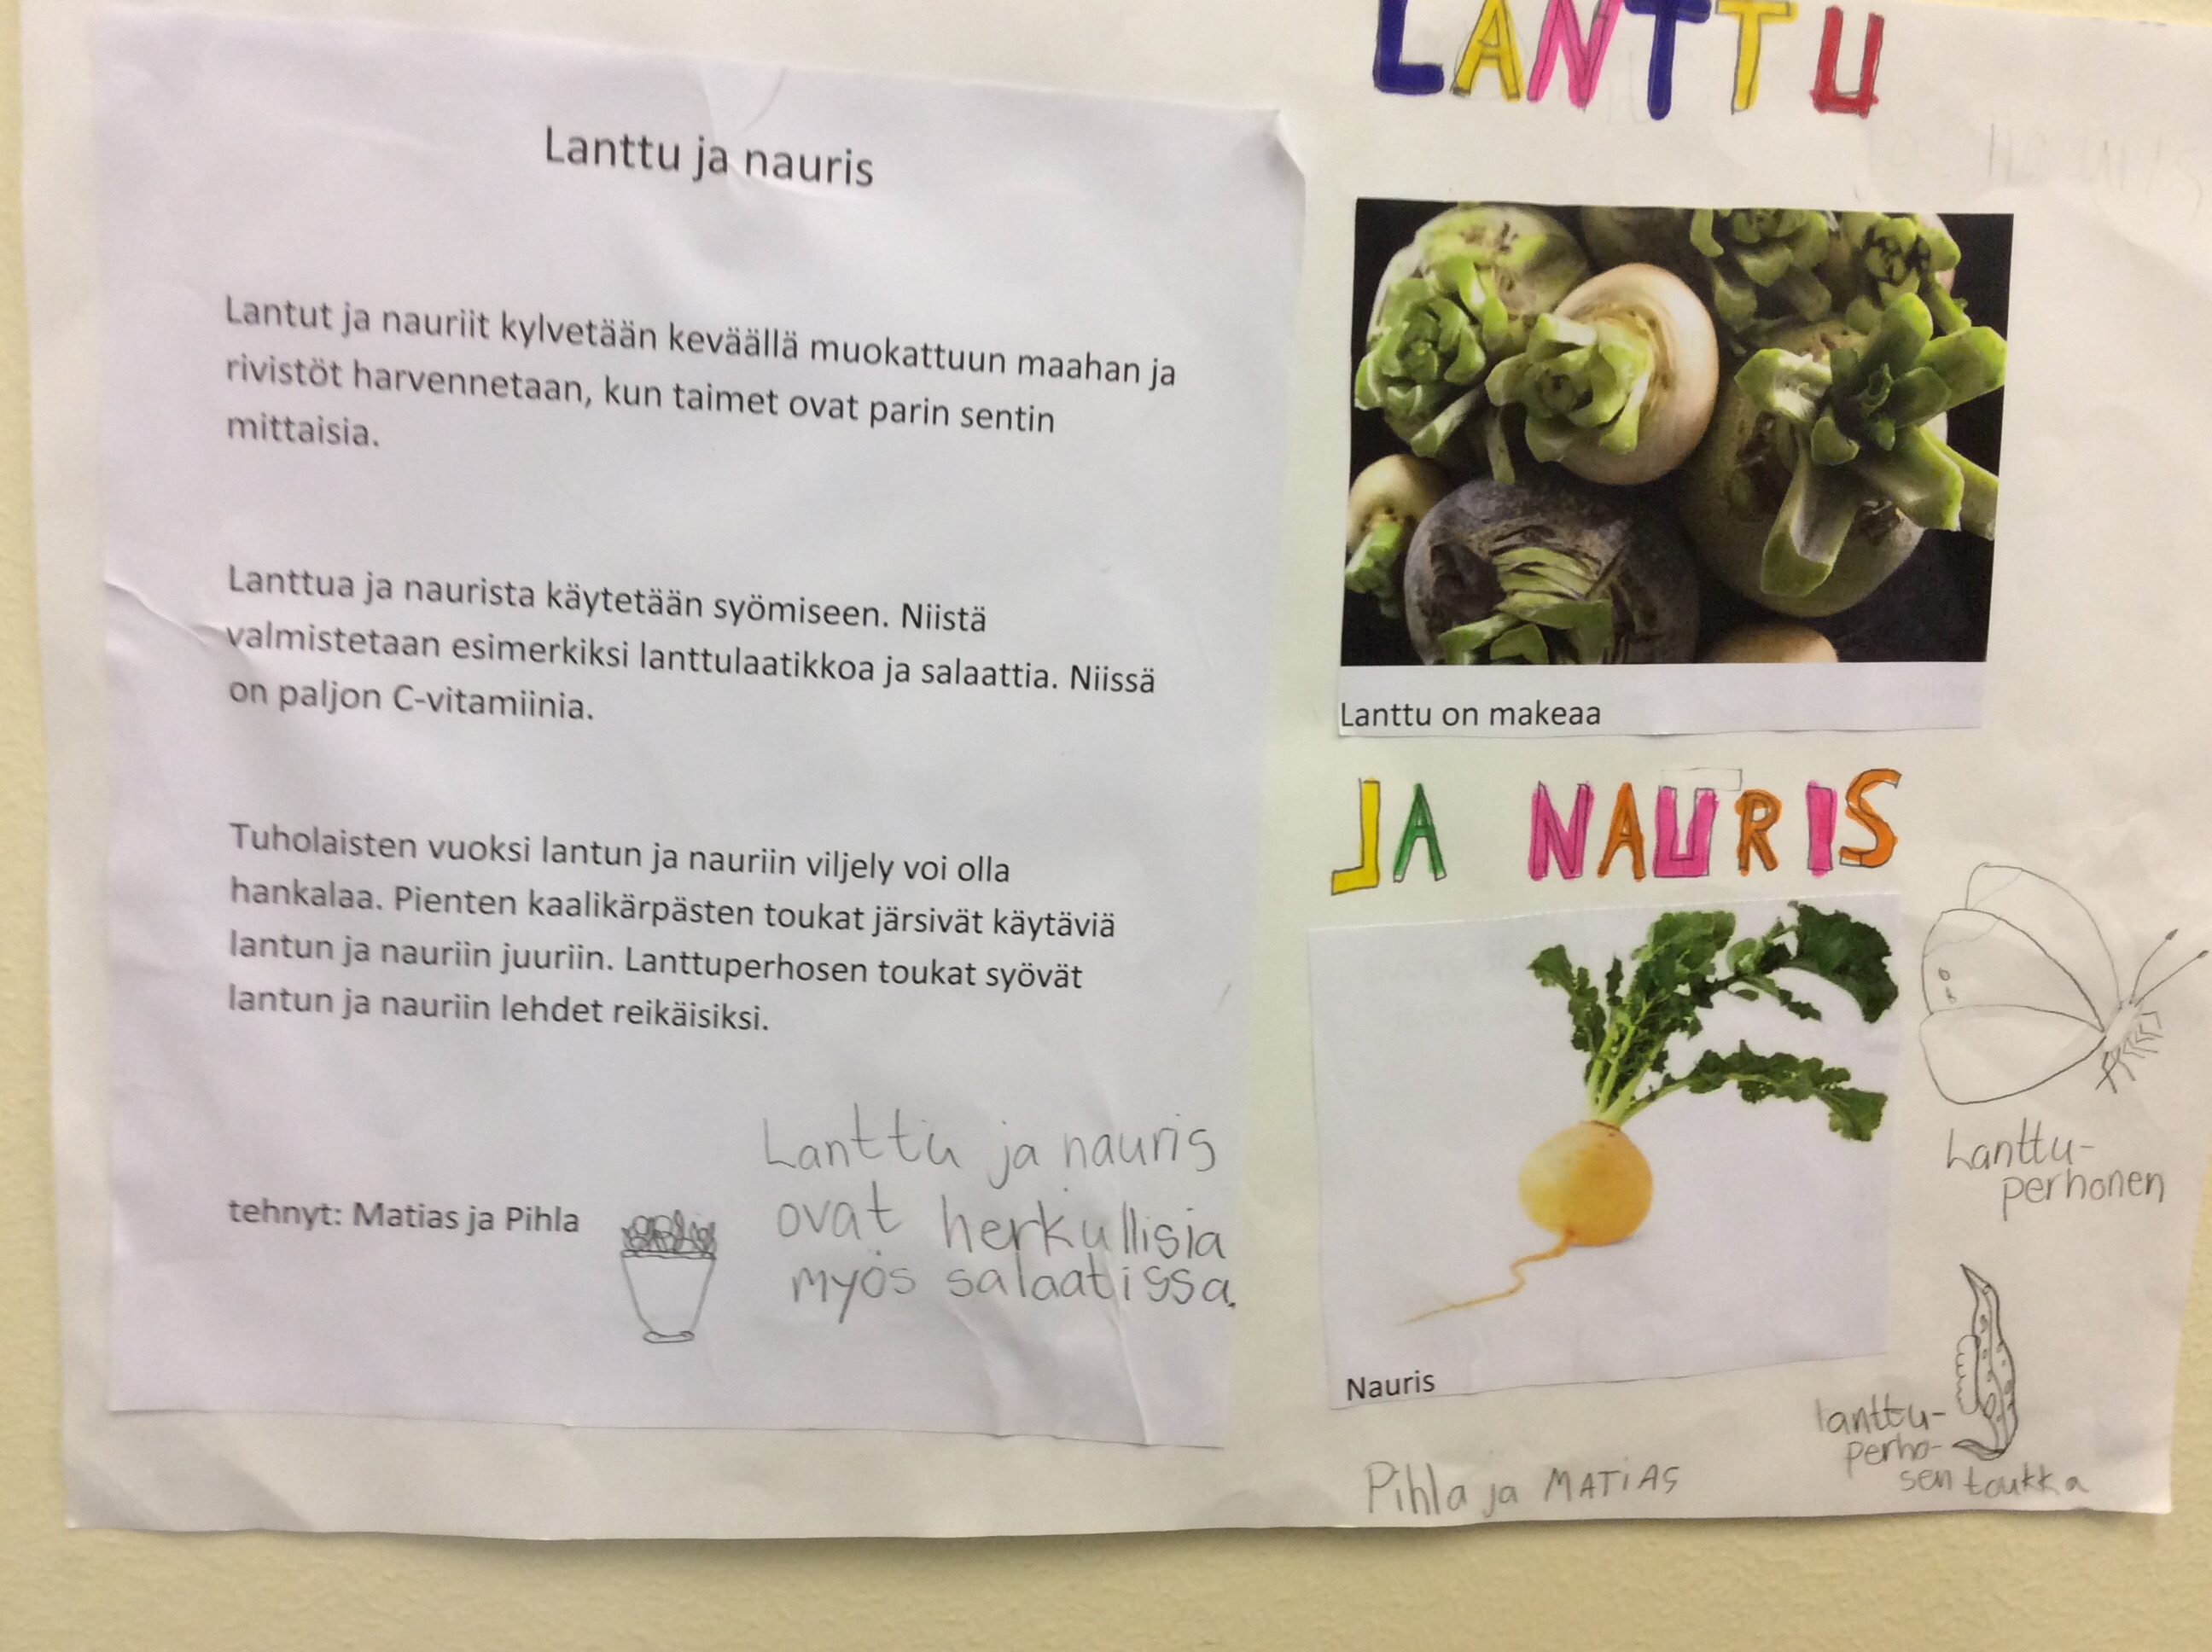 Lanttu ja nauris
Lantut ja nauriit kylvetään keväällä muokattuun maahan ja
rivistöt harvennetaan, kun taimet ovat parin sentin
mittaisia.
Lanttua ja naurista käytetään syömiseen. Niistä
valmistetaan esimerkiksi lanttulaatikkoa ja salaattia. Niissä
on paljon C-vitamiinia.
Tuholaisten vuoksi lantun ja nauriin viljely voi olla
hankalaa. Pienten kaalikärpästen toukat järsivät käytäviä
lantun ja nauriin juuriin. Lanttuperhosen toukat syövät
lantun ja nauriin lehdet reikäisiksi.
tehnyt: Matias ja Pihla
Lanttu ja nauris
ovat herkullisia
myös salaatissa.
LANTTU
Lanttu on makeaa
JA NAURIS
Nauris
Lanttu-
perhonen
lanttu-
perho-
sen toukka
Pihla ja MATiAS